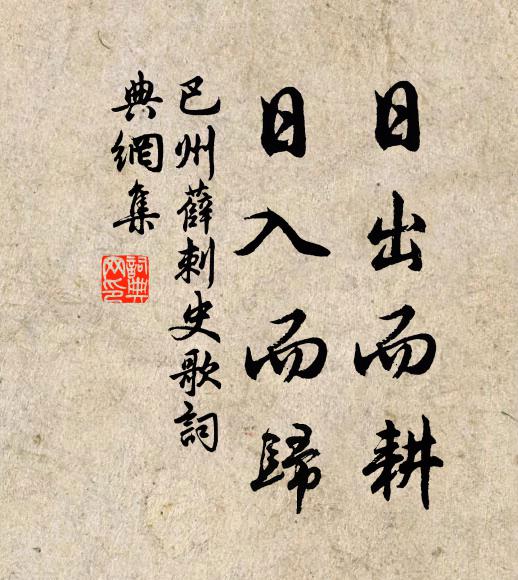 日出而耕
日入而歸
巴州薛刺史歌詞
典網集
詞典
网印